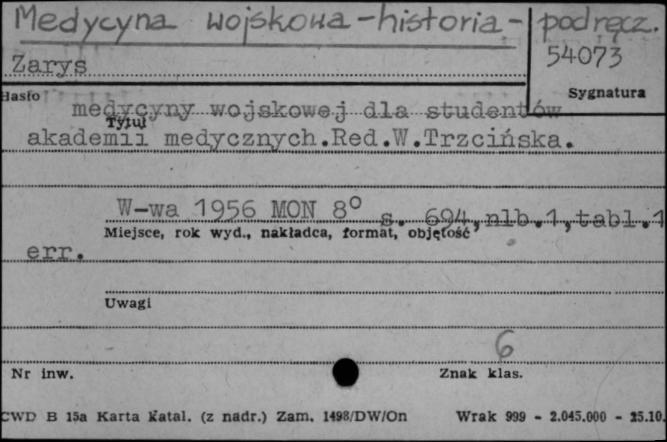 Medycyna wojskowa - historia - podręcz.
54073
Zarys
Sygnatura
Hasło
medycyny wojskowej dla studentów
Tytuł
akademii medycznych.Red.W.Trzcińska.
W-wa 1956 MON 8° s. 694,nlb.1,tabl.1
Miejsce, rok wyd., nakładca, format, objętość
err.
Uwagi
6
Nr inw. Znak klas.
CWD B 15a Karta Katal. (z nadr.) Zam. 1498/DW/On Wrak 999 - 2.045.000 - 25.10.